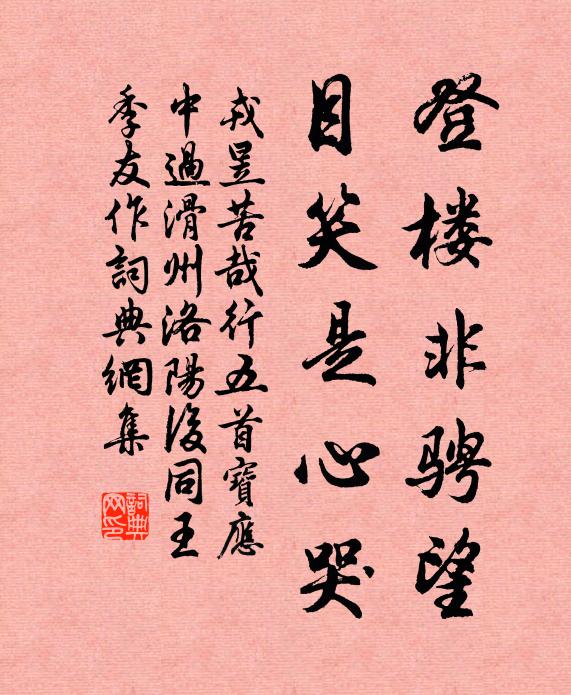 登楼非骋望
目笑是心哭
戎昱苦哉行五首寶應
中過滑州洛陽後同王
季友作詞典網集
詞典
网印